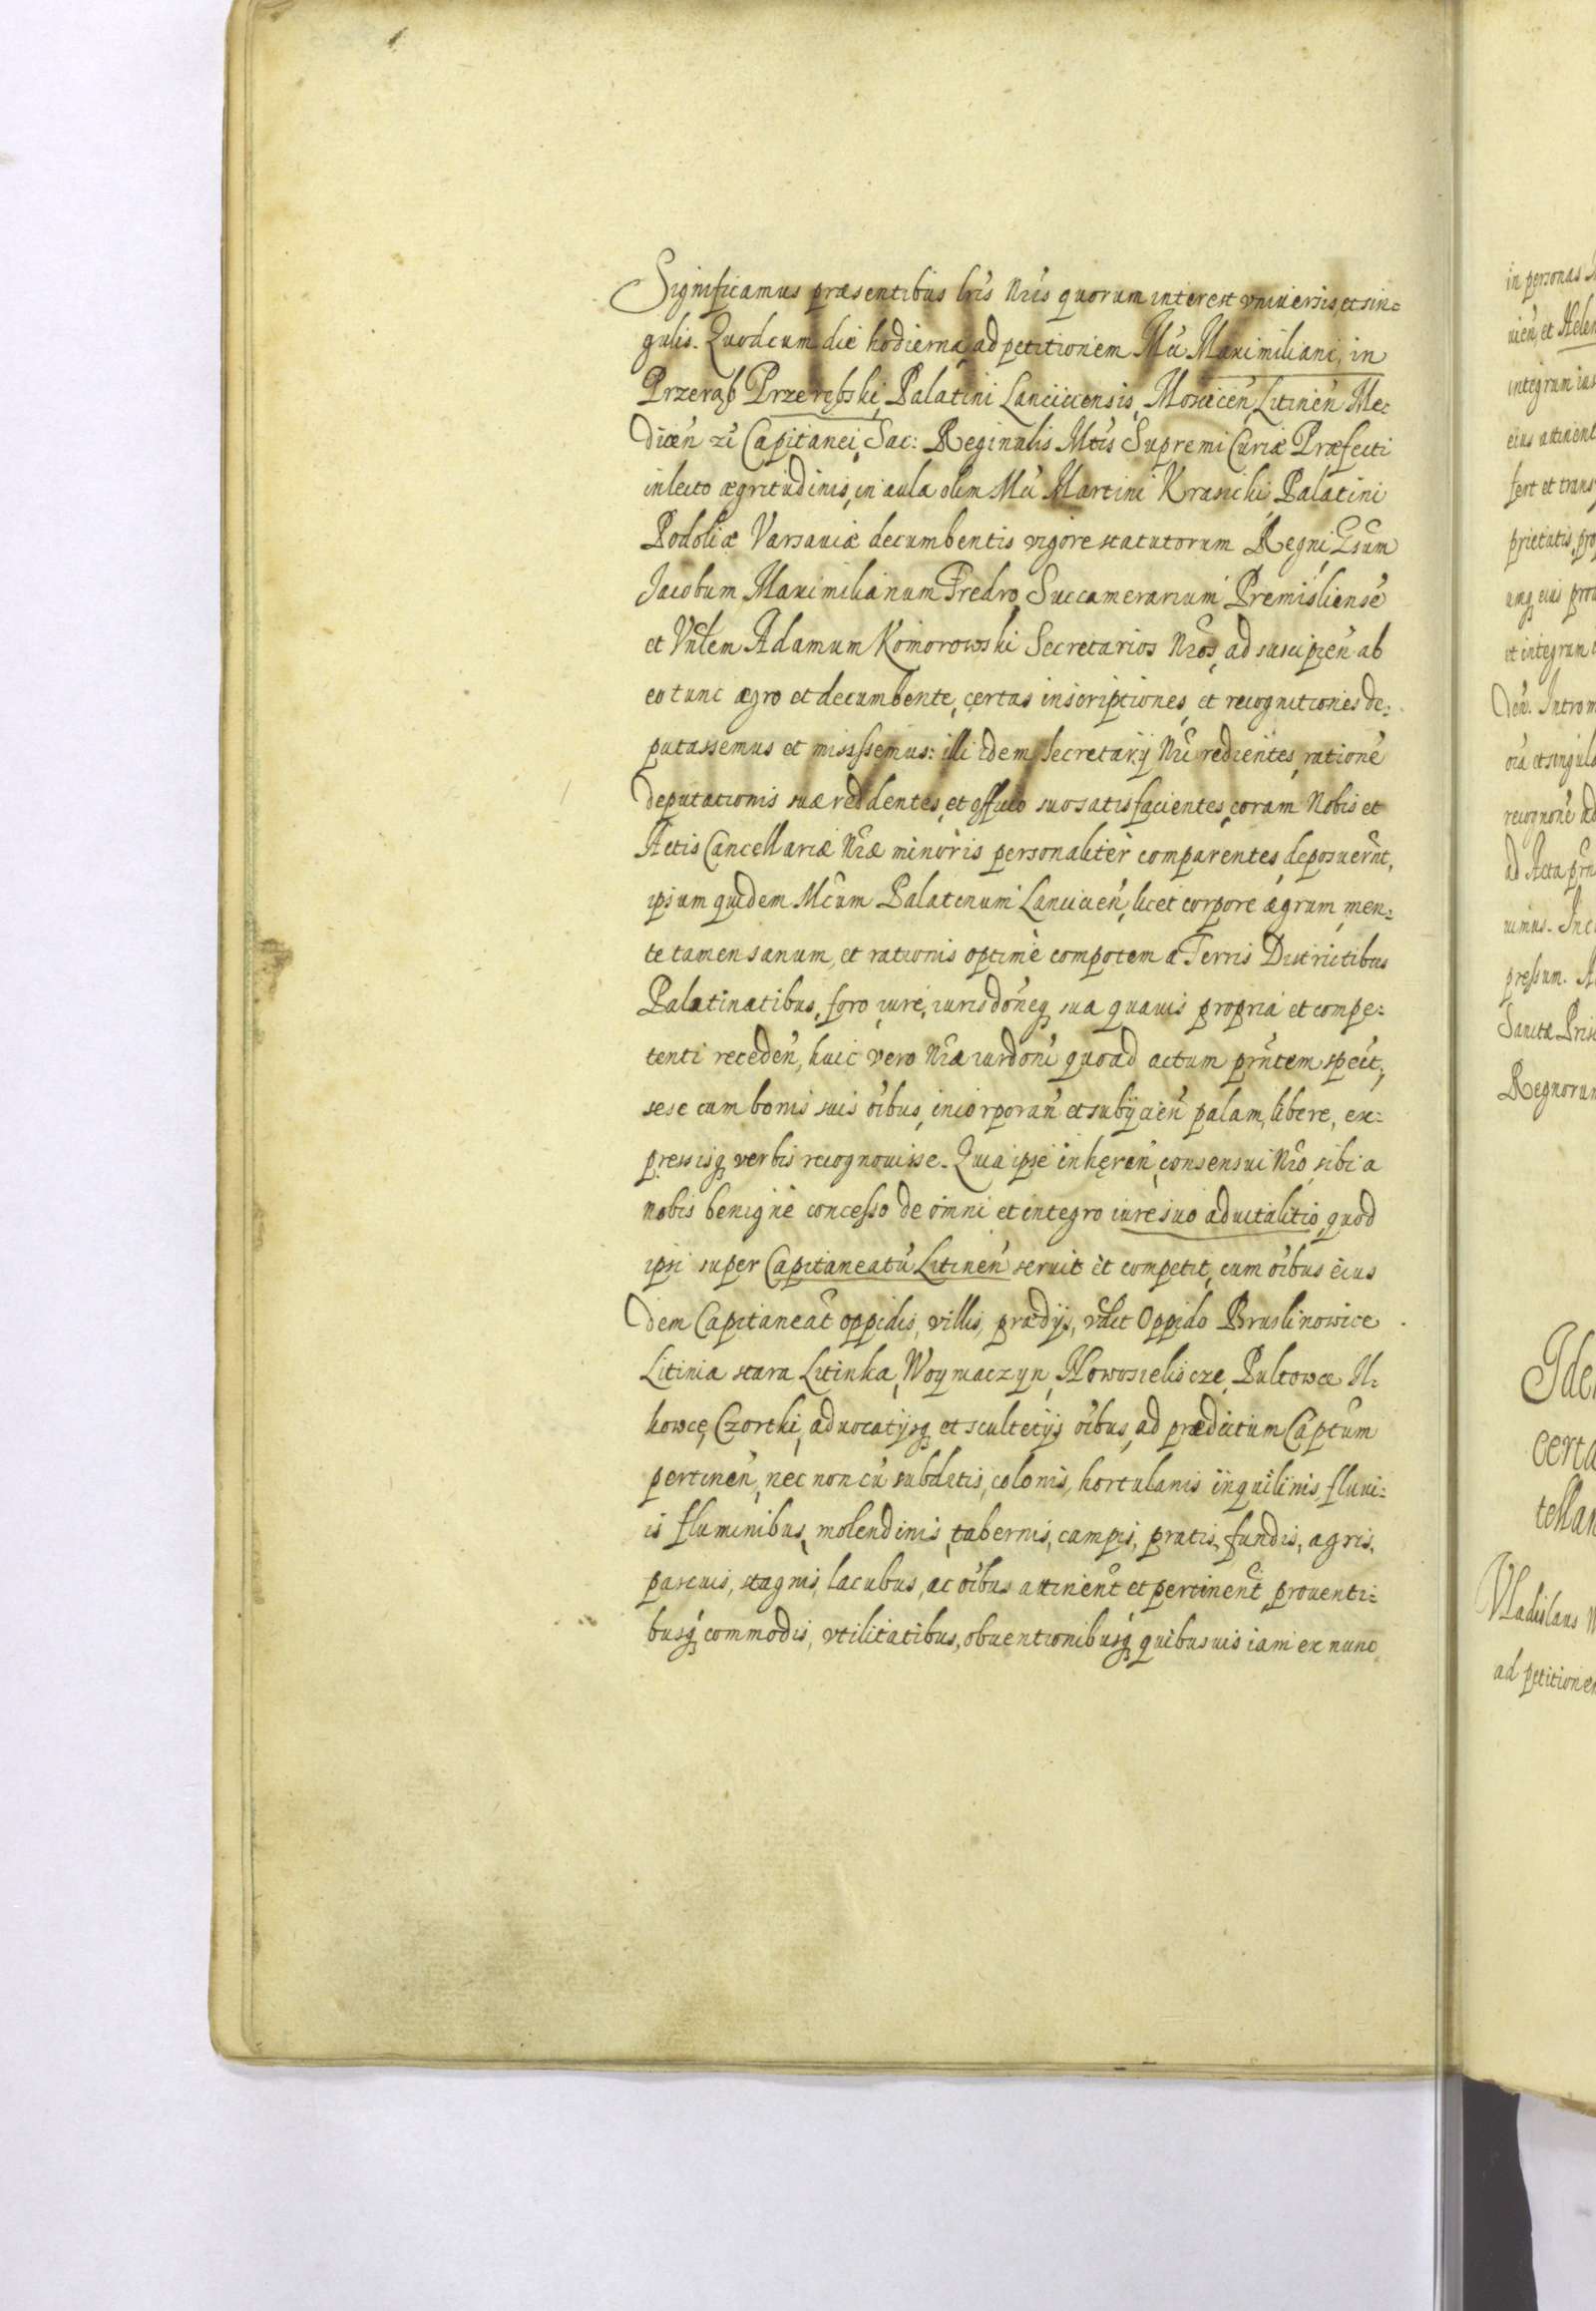 Significamus præsentibus lris nris quorum interest vniuersis, et sin=
gulis. Quod cum die hodierna, ad petitionem Mci Maximiliani, in
Przerąb Przerębski, Palatini Lanciciensis, Moscicen, Litinen, Me=
dicen zt Capitanei, Sac: Reginalis Mtis Supremi Curiæ Præfecti
in lecto ægritudinis, in aula olim Mci Martini Krasicki, Palatini
Podoliæ Varsauiæ decumbentis vigore statutorum Regni, Gsum
Jacobum Maximilianum Fredro, Succamerarium Premisliense
et Vrlem Adamum Komorowski Secretarios Nros, ad suscipien ab
eo tunc ægro et decumbente, certas inscriptiones, et recognitiones de=
putassemus et misissemus: illi idem secretarij Nri redientes, ratione
deputationis suæ reddentes, et officio suo satisfacientes, coram Nobis et
Actis Cancellariæ Nræ minoris personaliter comparentes, deposuerunt,
ipsum quidem Mcum Palatinum Lancicien, licet corpore ægrum, men=
te tamen sanum, et rationis optime compotem a Terris Districtibus
Palatinatibus, foro iure, iurisdoneq sua quauis propria et compe=
tenti receden, huic vero Nræ iurdoni quoad actum prntem spect,
sese cum bonis suis oibus, incorporan et subijcien palam, libere, ex=
pressisq verbis recognouisse. Quia ipse inhęren, consensui Nro, sibi a
nobis benigne concesso de omni et integro iure suo aduitalitio, quod
ipsi super Capitaneatu Litinen seruit et competit, cum oibus eius
dem Capitaneat oppidis, villis, prædijs, vdlt Oppido Bruslinowice
Litinia stara Litinka, Woynaczyn, Nowosieliscze, Pultowce Il=
kowce, Czortki, aduocatijsq et scultetijs oibus, ad prædictum Captum
pertinen, nec non cu subditis, colonis, hortulanis inquilinis, fluui=
is fluminibus, molendinis, tabernis, campis, pratis, fundis, agris,
pascuis, stagnis, lacubus, ac oibus attinent et pertinent prouenti=
busq commodis, vtilitatibus, obuentionibusq quibusuis iam ex nunc
in personas
nien, et Helen
integrum ius
eius attinent
fert et trans
prietatis, pro
umq eius prou
et integrum
den. Introm
oia et singula
recognone ad
ad Acta prn
uimus. In cu
pressum.
Sanctæ Pris
Regnorum
Ide
certa
tellan
Vladislaus
ad petitionem